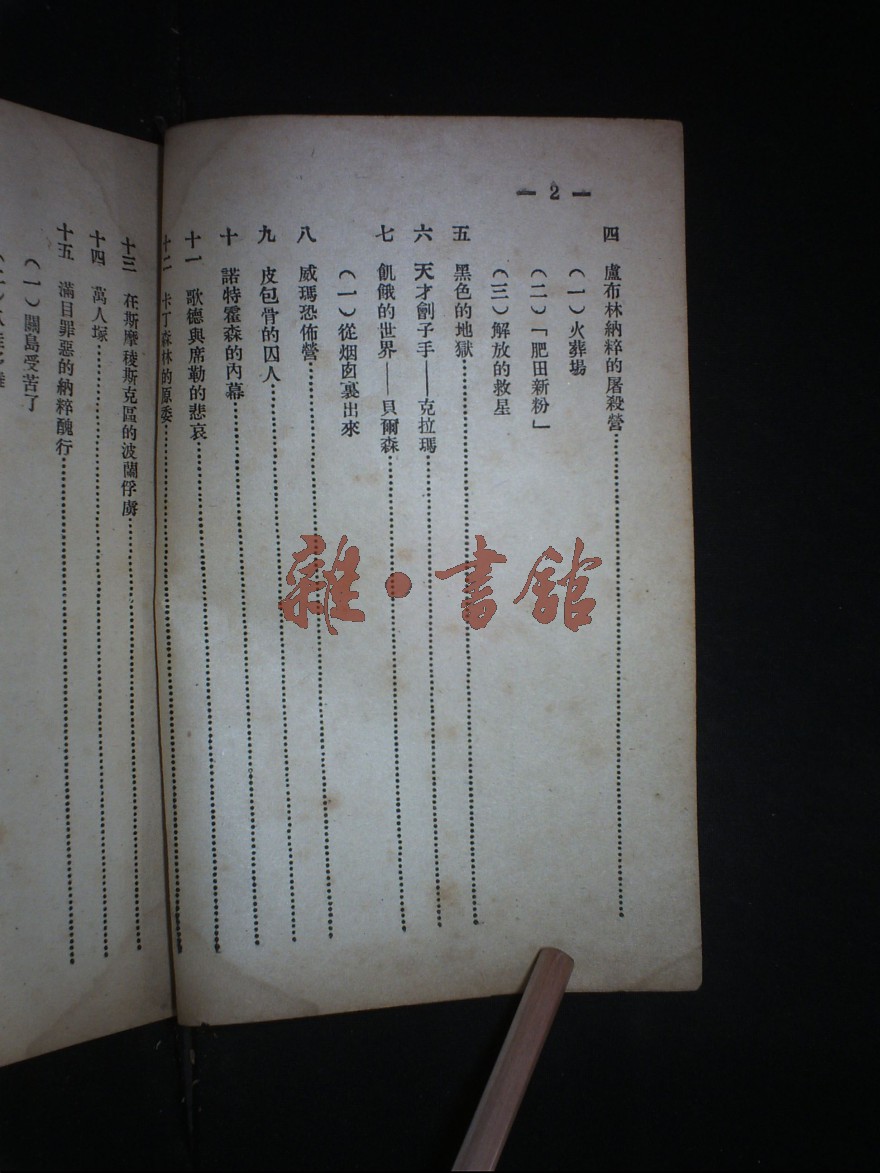 — 2 —
四 盧布林納粹的屠殺營
（一）火葬場
（二）「肥田新粉」
（三）解放的救星
五 黑色的地獄
六 天才劊子手——克拉瑪
七 飢餓的世界——貝爾森
（一）從烟囱裏出來
八 威瑪恐佈營
九 皮包骨的囚人
十 諾特霍森的內幕
十一 歌德與席勒的悲哀
十二 卡丁森林的原委
十三 在斯摩稜斯克區的波蘭俘虜
十四 萬人塚
十五 滿目罪惡的納粹醜行
（一）關島受苦了
雜·書館